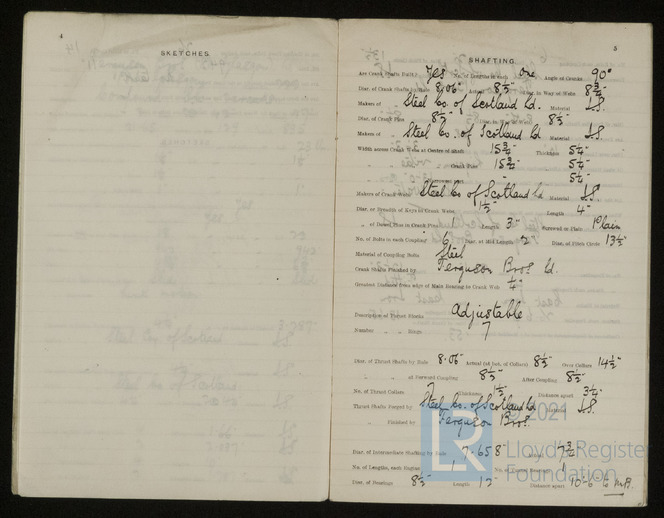 4
SKETCHES.
5
SHAFTING.
Are Crank Shafts Built? Yes No. of Lengths in each one Angle of Cranks 90°
Diar. of Crank Shafts by Rule 8.06" Actual 8½" Diar. in Way of Webs 8¾"
Makers of " Steel Co. of Scotland Ld. Material I.S.
Diar. of Crank Pins 8½" Diar. in Way of Webs 8½"
Makers of " Steel Co. of Scotland Ld Material I.S.
Width across Crank Webs at Centre of Shaft 15¾" Thickness 5¼"
" " Crank Pins 15¾" " 5¼"
" 5¼"
Makers of Crank Webs Steel Co of Scotland Ld Material I.S.
Diar. or Breadth of Keys in Crank Webs 1½" Length 4"
" of Dowel Pins in Crank Pins 1" Length 3" Screwed or Plain Plain
No. of Bolts in each Coupling 6 Diar. at Mid Length 2" Diar. of Pitch Circle 13½"
Material of Coupling Bolts Steel
Crank Shafts Finished by Ferguson Bros Ld.
Greatest Distance from edge of Main Bearing to Crank Web ¼"
Description of Thrust Blocks Adjustable
Number " " Rings 7
Diar. of Thrust Shafts by Rule 8.06" Actual (at bot. of Collars) 8½" Over Collars 14½"
" " at Forward Coupling 8½" After Coupling 8½"
No. of Thrust Collars 7 Thickness 1½" Distance apart 3¼"
Thrust Shafts Forged by Steel Co. of Scotland Ld Material I.S.
" Finished by Ferguson Bros.
Diar. of Intermediate Shafting by Rule 7.658" Actual 7¾"
No. of Lengths, each Engine 1 No. of Tunnel Bearings 1
Diar. of Bearings 8½" Length 12" Distance apart 10'-6" to
© 2021
LR
Lloyd's Register
Foundation